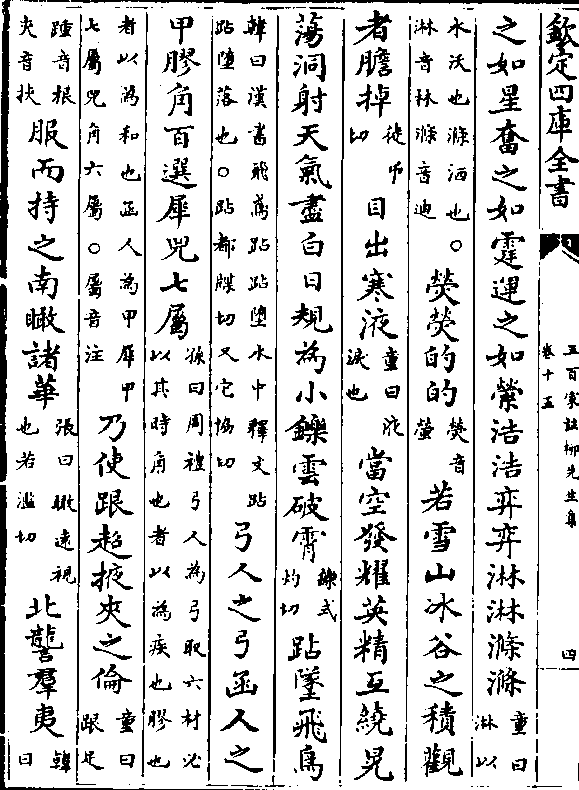 欽定四庫全書
五百家註柳先生集
卷十五
四
之如星奮之如霆運之如縈浩浩弈弈淋淋滌滌
童曰
淋以
水沃也滌洒也○
淋音林滌音迪
熒熒的的
熒音
螢
若雪山冰谷之積觀
者膽掉
徒弔
切
目出寒液
童曰液
淚也
當空發耀英精互繞晃
蕩洞射天氣盡白日規為小鑠雲破霄
鑠式
灼切
跕墜飛鳥
韓曰漢書飛鳶跕跕墮水中釋文跕
跕墮落也○跕都牒切又它協切
弓人之弓函人之
甲膠角百選犀兕七屬
孫曰周禮弓人為弓取六材必
以其時角也者以為疾也膠也
者以為和也函人為甲犀甲
七屬兕角六屬○屬音注
乃使跟超掖夾之倫
童曰
跟足
踵音根
夾音挾
服而持之南瞰諸華
張曰瞰遠視
也若濫切
北讋羣夷
韓
曰